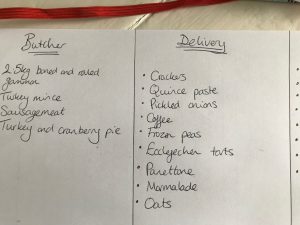 Butcher
2.5kg boned and rolled
gammon
Turkey mince
Sausagemeat
Turkey and cranberry pie
Delivery
• Crackers
• Quince paste
• Pickled onions
• Coffee
• Frozen peas
• Ecclefechan tarts
• Panettone
• Marmalade
• Oats